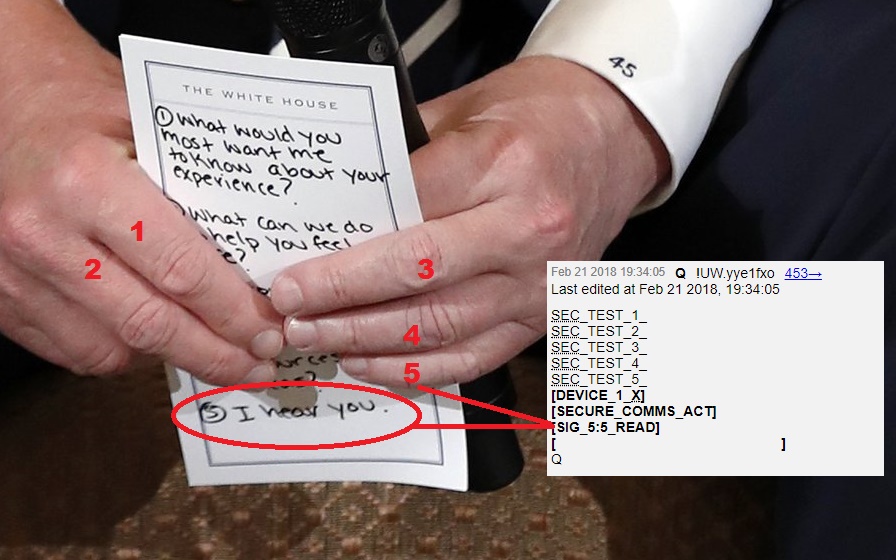 45
THE WHITE HOUSE
① What would you
most want me
to know about your
experience?
What can we do
help you feel
⑤ I hear you.
1
2
3
4
5
Feb 21 2018 19:34:05 Q !UW.yye1fxo 453→
Last edited at Feb 21 2018, 19:34:05
SEC_TEST_1_
SEC_TEST_2_
SEC_TEST_3_
SEC_TEST_4_
SEC_TEST_5_
[DEVICE_1_X]
[SECURE_COMMS_ACT]
[SIG_5:5_READ]
[ ]
Q